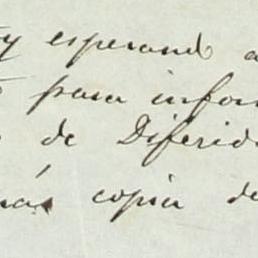 y esperando a
para infor
de Diferid
más copia de